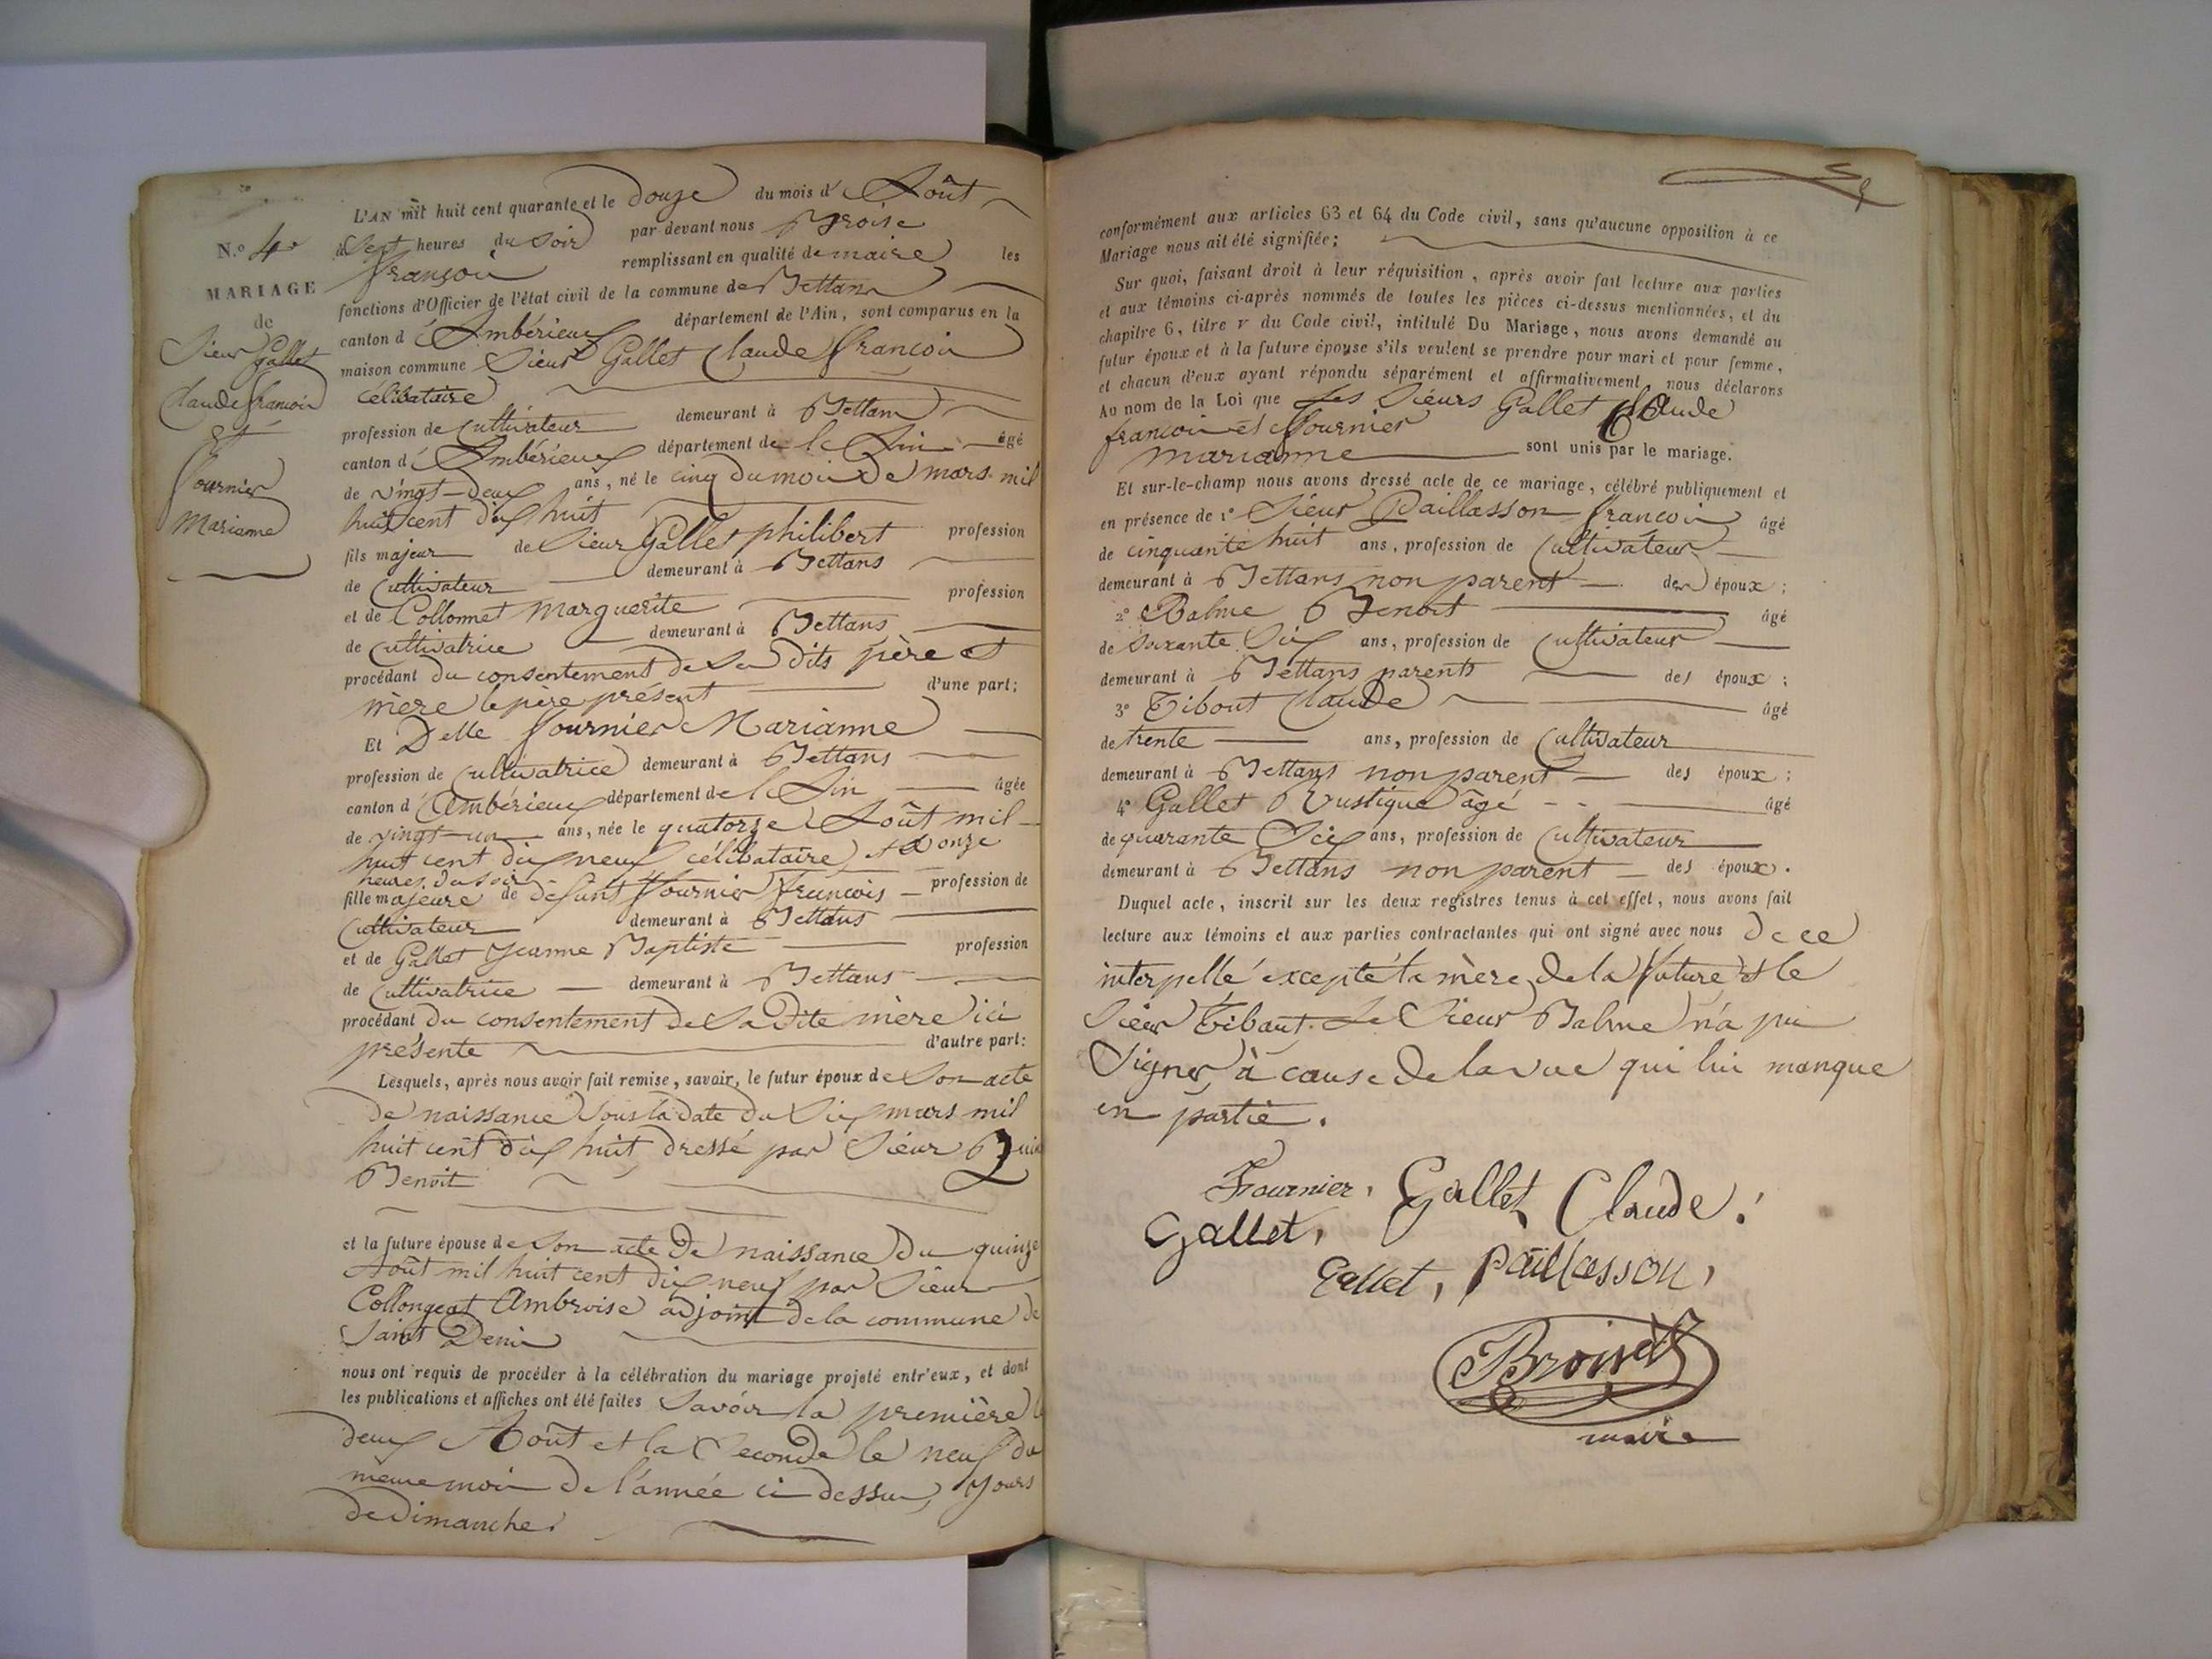 N.o 4.
MARIAGE
de
Sieur Gallet
Claude françois
et
fournier
Marianne
L'AN mil huit cent quarante et le Douze du mois d' Août
à Sept heures du Soir par devant nous Broise
françois remplissant en qualité de maire les
fonctions d'Officier de l'état civil de la commune de Bettans
canton d' Ambérieux département de l'Ain, sont comparus en la
maison commune Sieur Gallet Claude françois
célibataire
profession de Cultivateur demeurant à Bettans
canton d' Ambérieux département de l'Ain âgé
de vingt-deux ans, né le cinq du mois de mars mil
huit cent dix huit
fils majeur de Sieur Gallet philibert profession
de Cultivateur demeurant à Bettans
et de Collomet Marguerite profession
de Cultivatrice demeurant à Bettans
procédant du consentement de Ses dits père et
mère le père présent d'une part;
Et Delle fournier Marianne
profession de Cultivatrice demeurant à Bettans
canton d' Ambérieux département de l'Ain âgée
de vingt-un ans, née le quatorze Août mil
huit cent dix neuf célibataire, à onze
heures du Soir
fille majeure de défunt fournier françois profession de
Cultivateur demeurant à Bettans
et de Gallet Jeanne Baptiste profession
de Cultivatrice demeurant à Bettans
procédant du consentement de Sa dite mère ici
présente d'autre part:
Lesquels, après nous avoir fait remise, savoir, le futur époux de Son acte
de naissance Sous la date du Six mars mil
huit cent dix huit, dressé par Sieur
Benoit
et la future épouse de Son acte de naissance du quinze
Août mil huit cent dix neuf par Sieur
Collongeat Ambroise adjoint de la commune de
Saint Denis
nous ont requis de procéder à la célébration du mariage projeté entr'eux, et dont
les publications et affiches ont été faites Savoir la première le
deux Août et la Seconde le neuf du
même mois de l'année ci dessus, Jours
de Dimanche.
conformément aux articles 63 et 64 du Code civil, sans qu'aucune opposition à ce
Mariage nous ait été signifiée;
Sur quoi, faisant droit à leur réquisition, après avoir fait lecture aux parties
et aux témoins ci-après nommés de toutes les pièces ci-dessus mentionnées, et du
chapitre 6, titre v du Code civil, intitulé Du Mariage, nous avons demandé au
futur époux et à la future épouse s'ils veulent se prendre pour mari et pour femme,
et chacun d'eux ayant répondu séparément et affirmativement, nous déclarons
Au nom de la Loi que les Sieurs Gallet Claude
françois et fournier
marianne sont unis par le mariage.
Et sur-le-champ nous avons dressé acte de ce mariage, célébré publiquement et
en présence de 1° Sieur Paillasson françois âgé
de cinquante huit ans, profession de Cultivateur
demeurant à Bettans non parent des époux;
2° Balme Benoit âgé
de Soixante Six ans, profession de Cultivateur
demeurant à Bettans parents des époux;
3° Tibout Claude âgé
de trente ans, profession de Cultivateur
demeurant à Bettans non parent des époux;
4° Gallet Rustique âgé âgé
de quarante Six ans, profession de Cultivateur
demeurant à Bettans non parent des époux.
Duquel acte, inscrit sur les deux registres tenus à cet effet, nous avons fait
lecture aux témoins et aux parties contractantes qui ont signé avec nous de ce
interpellé excepté la mère de la future et le
Sieur Tibaut. Le Sieur Balme n'a pu
Signer à cause de la vue qui lui manque
en partie.
Fournier, Gallet Claude.
Gallet,
Gallet, paillasson,
Broise
maire